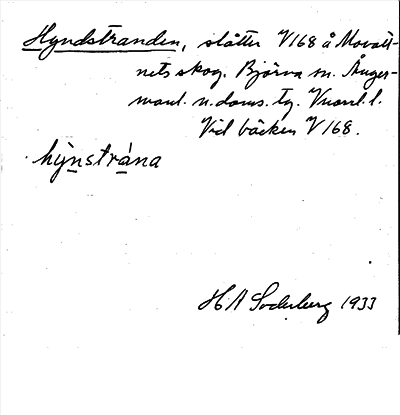 Hyndstranden, slåtter V168 å Movatt-
nets skog. Björna sn. Ånger-
manl. n. doms. tg. Vnorrl. l.
Vid bäcken V168.
hỳnstrána
H A Söderberg 1933